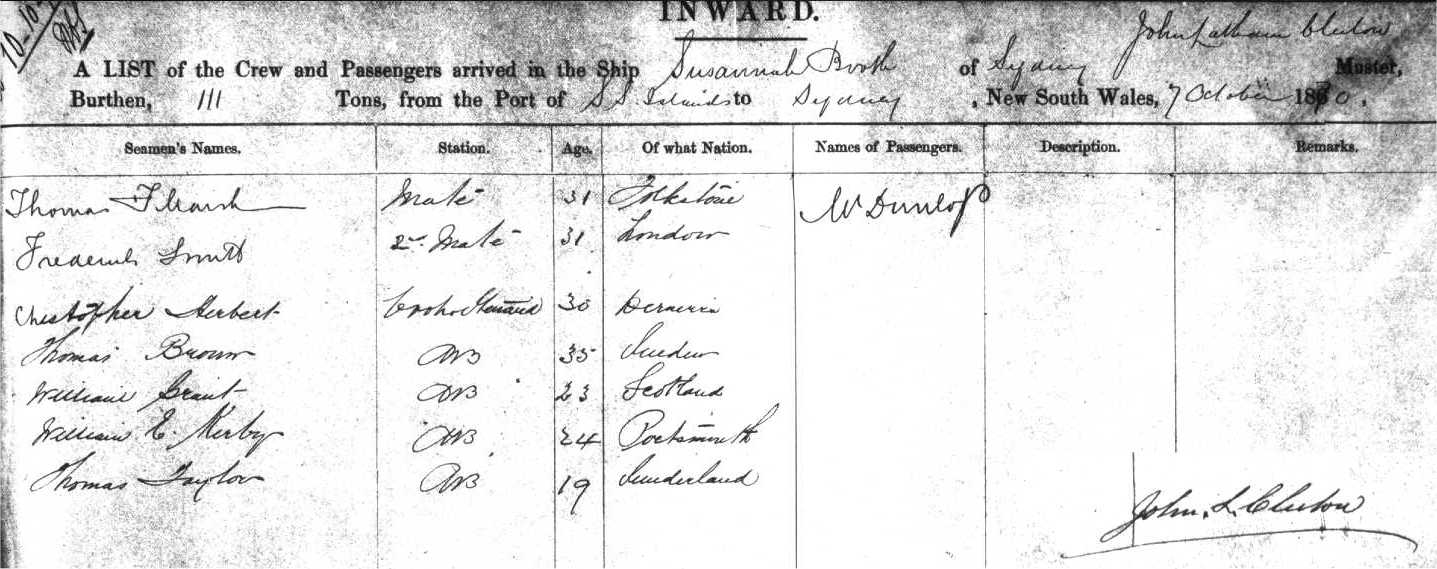 10-10-
INWARD.
John Latham Cluton
A LIST of the Crew and Passengers arrived in the Ship Susannah Booth of Sydney Master,
Burthen, 111 Tons, from the Port of S S Islands to Sydney, New South Wales, 7 October 1880.
Seamen's Names. Station. Age. Of what Nation. Names of Passengers. Description. Remarks.
Thomas Mate 31 Folkstone Mr Dunlop
Frederick Smith 2nd Mate 31 London
Christopher Herbert Cook & Steward 30
Thomas Brown AB 35 Sweden
William Grant AB 23 Scotland
William E. Kirby AB 24 Portsmouth
Thomas Taylor AB 19 Sunderland
John. L. Cluton